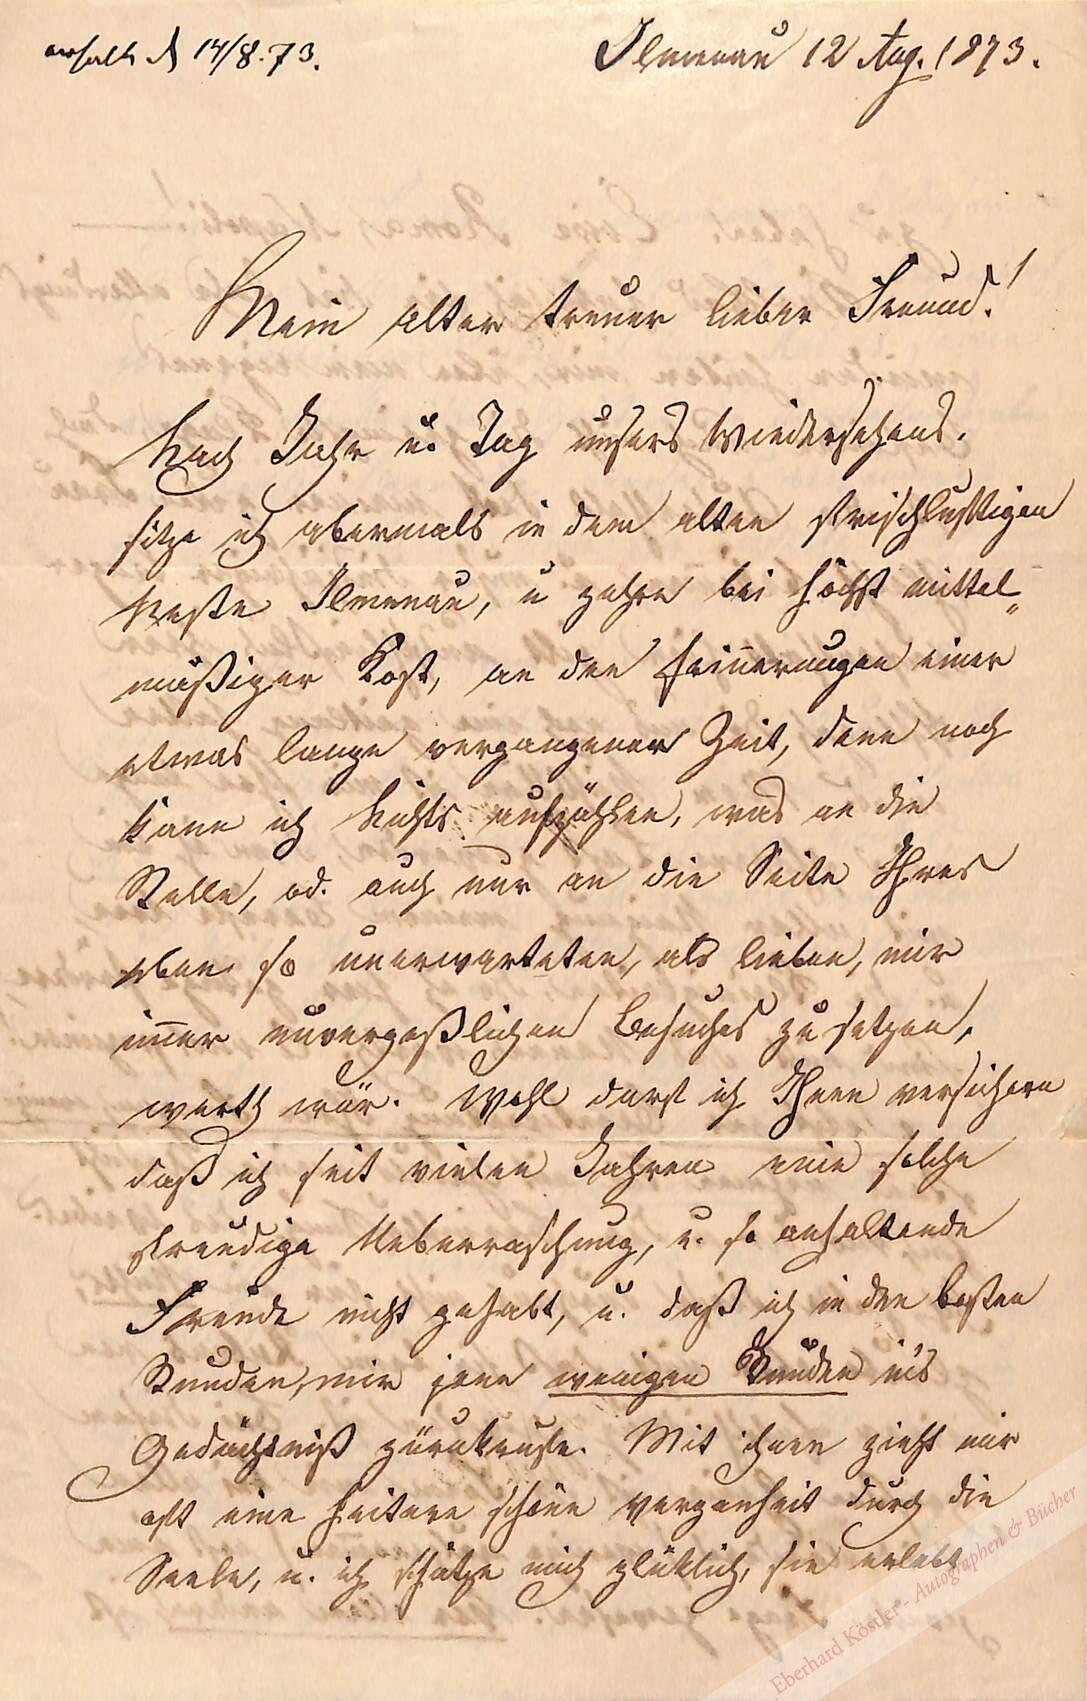 erhalt d 14/8.73.
Ilmenau 12 Aug. 1873.
Mein alter treuer lieber Freund!
Nach Jahr u. Tag unsers Wiedersehens,
sitze ich abermals in dem alten frischluftigen
Neste Ilmenau, u zehre bei höchst mittel„
mäßiger Kost, an den Erinnerungen einer
etwas lange vergangener Zeit, denn noch
kann ich Nichts aufzählen, was an die
Stelle, od. auch nur an die Seite Ihres
eben so unerwarteten, als lieben, mir
im̅er unvergeßlichen Besuches zu setzen,
werth wär. Wohl darf ich Ihnen versichern
daß ich seit vielen Jahren eine solche
freudige Ueberraschung, u. so anhaltende
Freude nicht gehabt, u. daß ich in den besten
Stunden, mir jene wenigen Stunden in's
Gedächtniß zurückrufe. Mit ihnen zieht mir
oft eine heitere schöne Vergangenheit durch die
Seele, u. ich schätze mich glüklich, sie erlebt
Eberhard Köstler - Autographen & Bücher